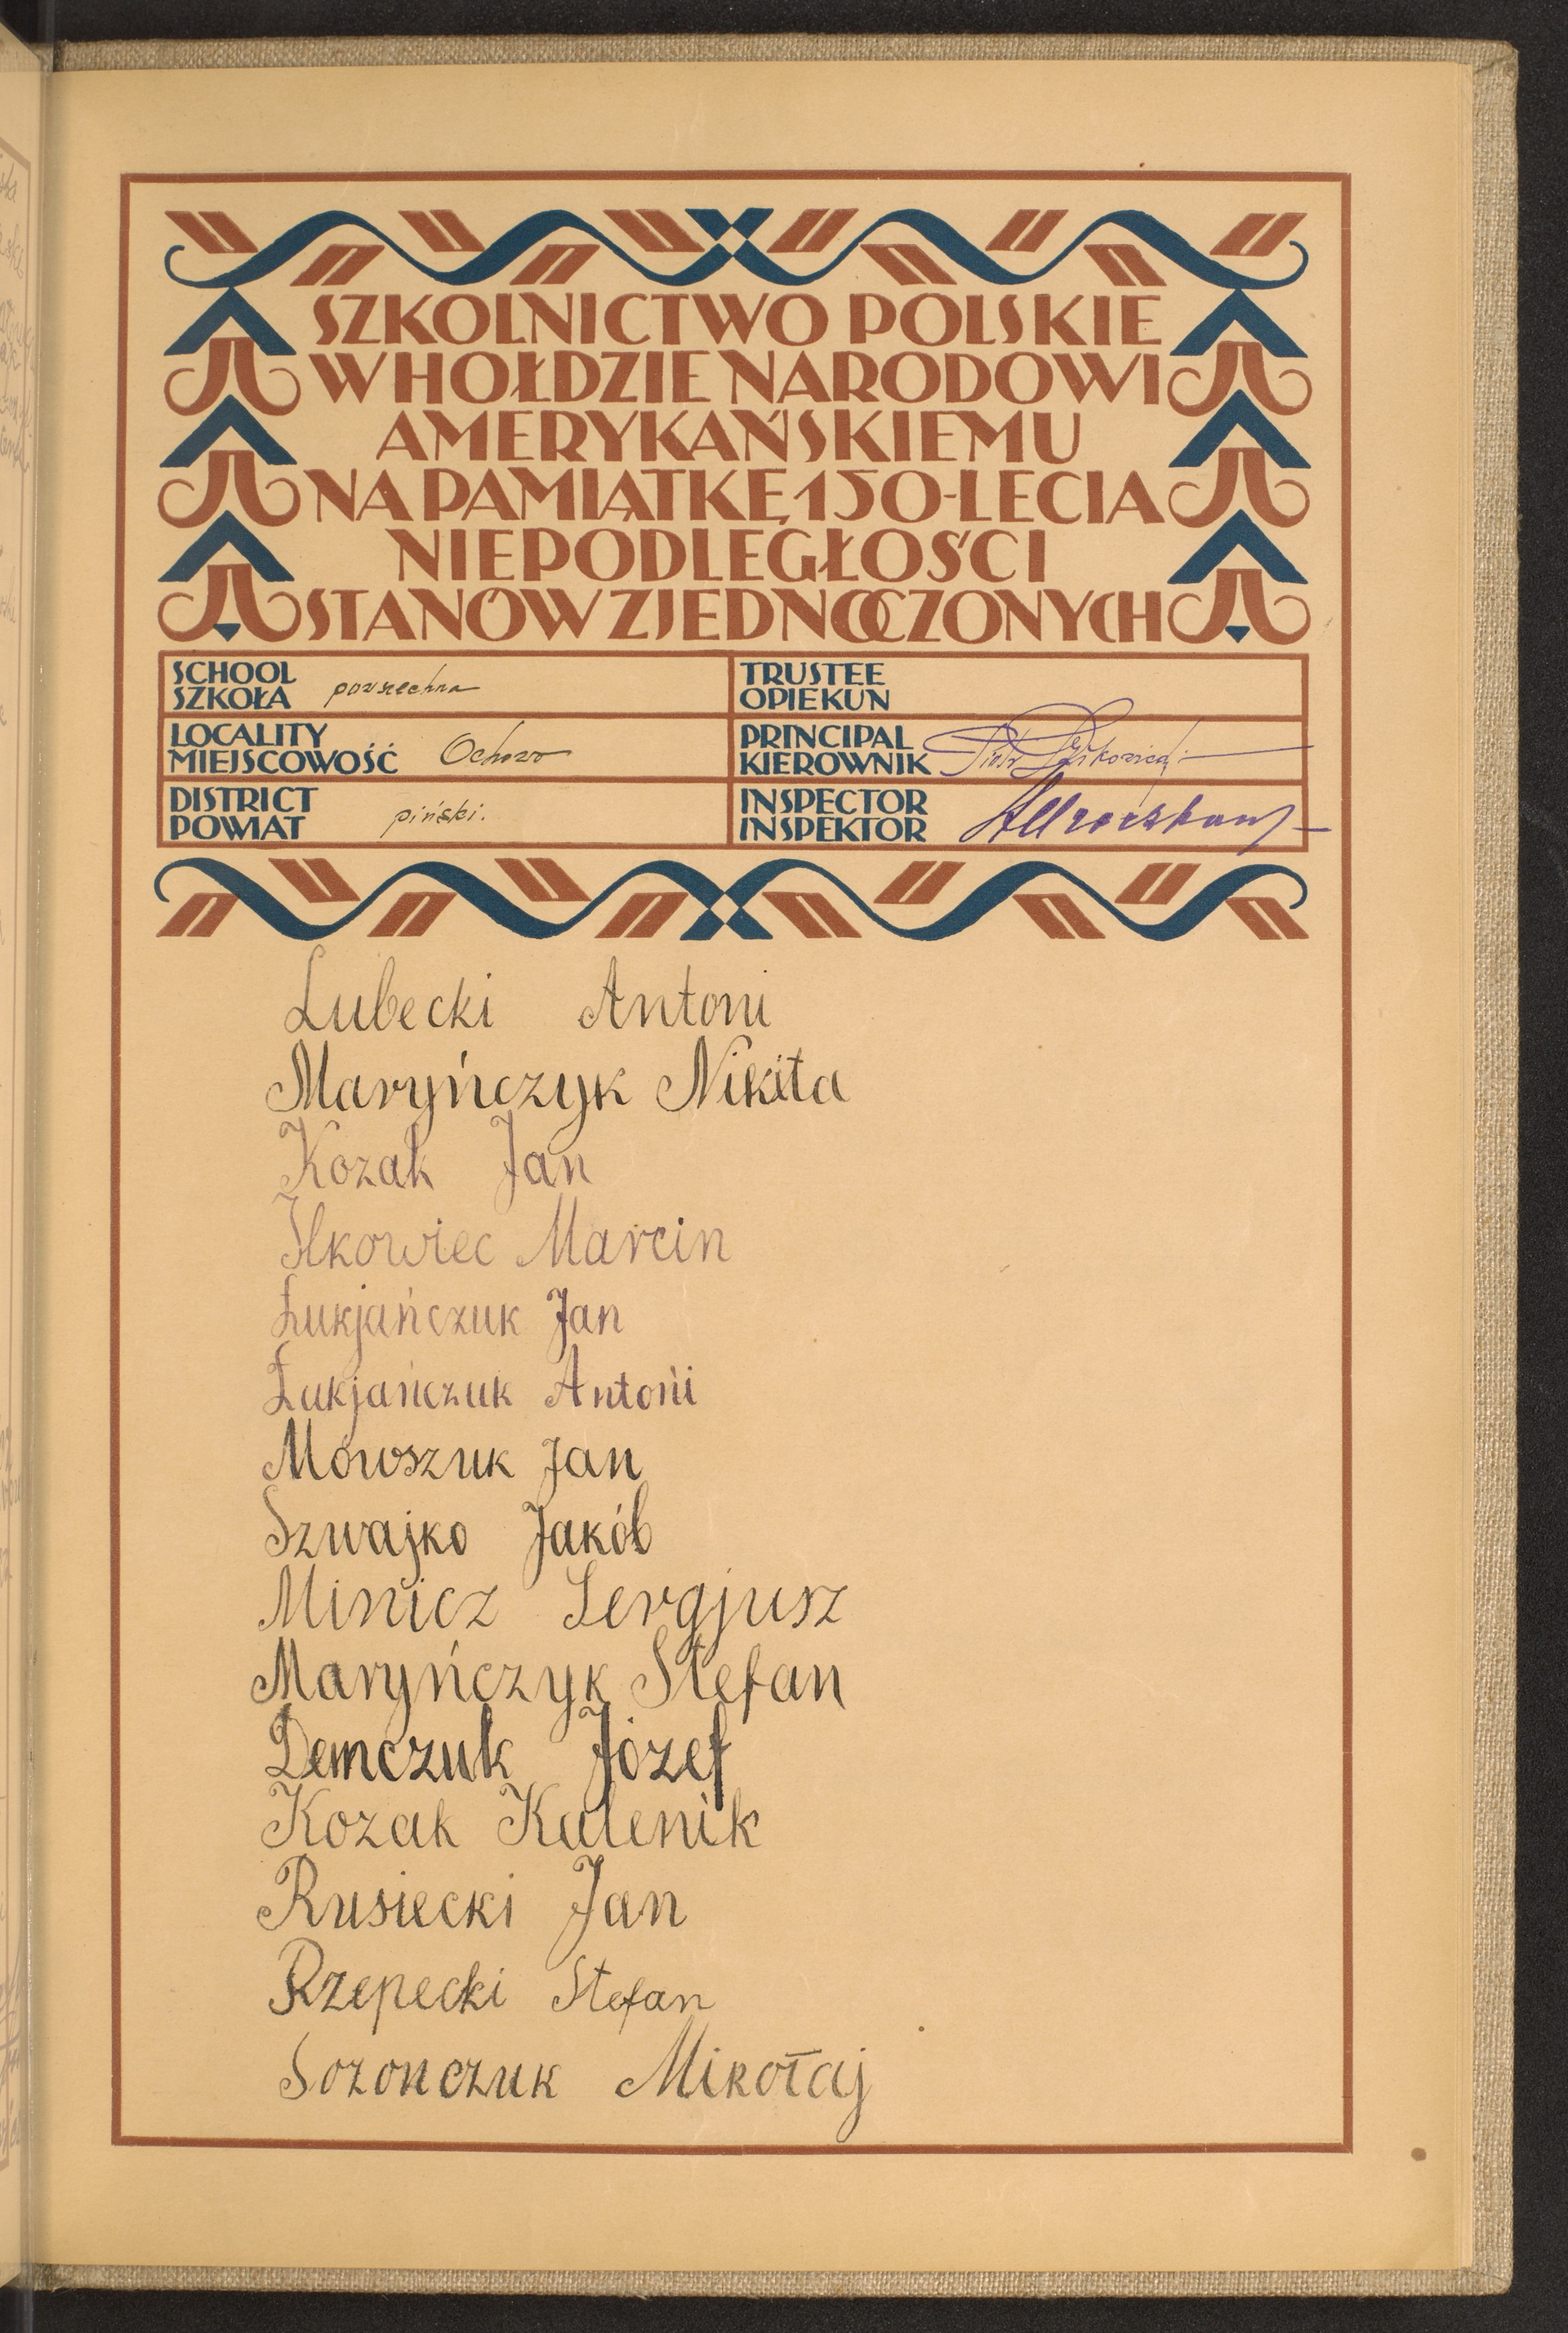 SZKOLNICTWO POLSKIE
W HOŁDZIE NARODOWI
AMERYKAŃSKIEMU
NA PAMIĄTKĘ 150-LECIA
NIEPODLEGŁOŚCI
STANÓW ZJEDNOCZONYCH
SCHOOL
SZKOŁA powszechna
TRUSTEE
OPIEKUN
LOCALITY
MIEJSCOWOŚĆ Ochowo
PRINCIPAL
KIEROWNIK Piotr
DISTRICT
POWIAT piński.
INSPECTOR
INSPEKTOR
Lubecki Antoni
Maryńczyk Nikita
Kozak Jan
Ilkowiec Marcin
Łukjańczuk Jan
Łukjańczuk Antoni
Mowszuk Jan
Szwajko Jakób
Minicz Sergjusz
Maryńczyk Stefan
Demczuk Józef
Kozak Kalenik
Rusiecki Jan
Rzepecki Stefan
Sozonczuk Mikołaj